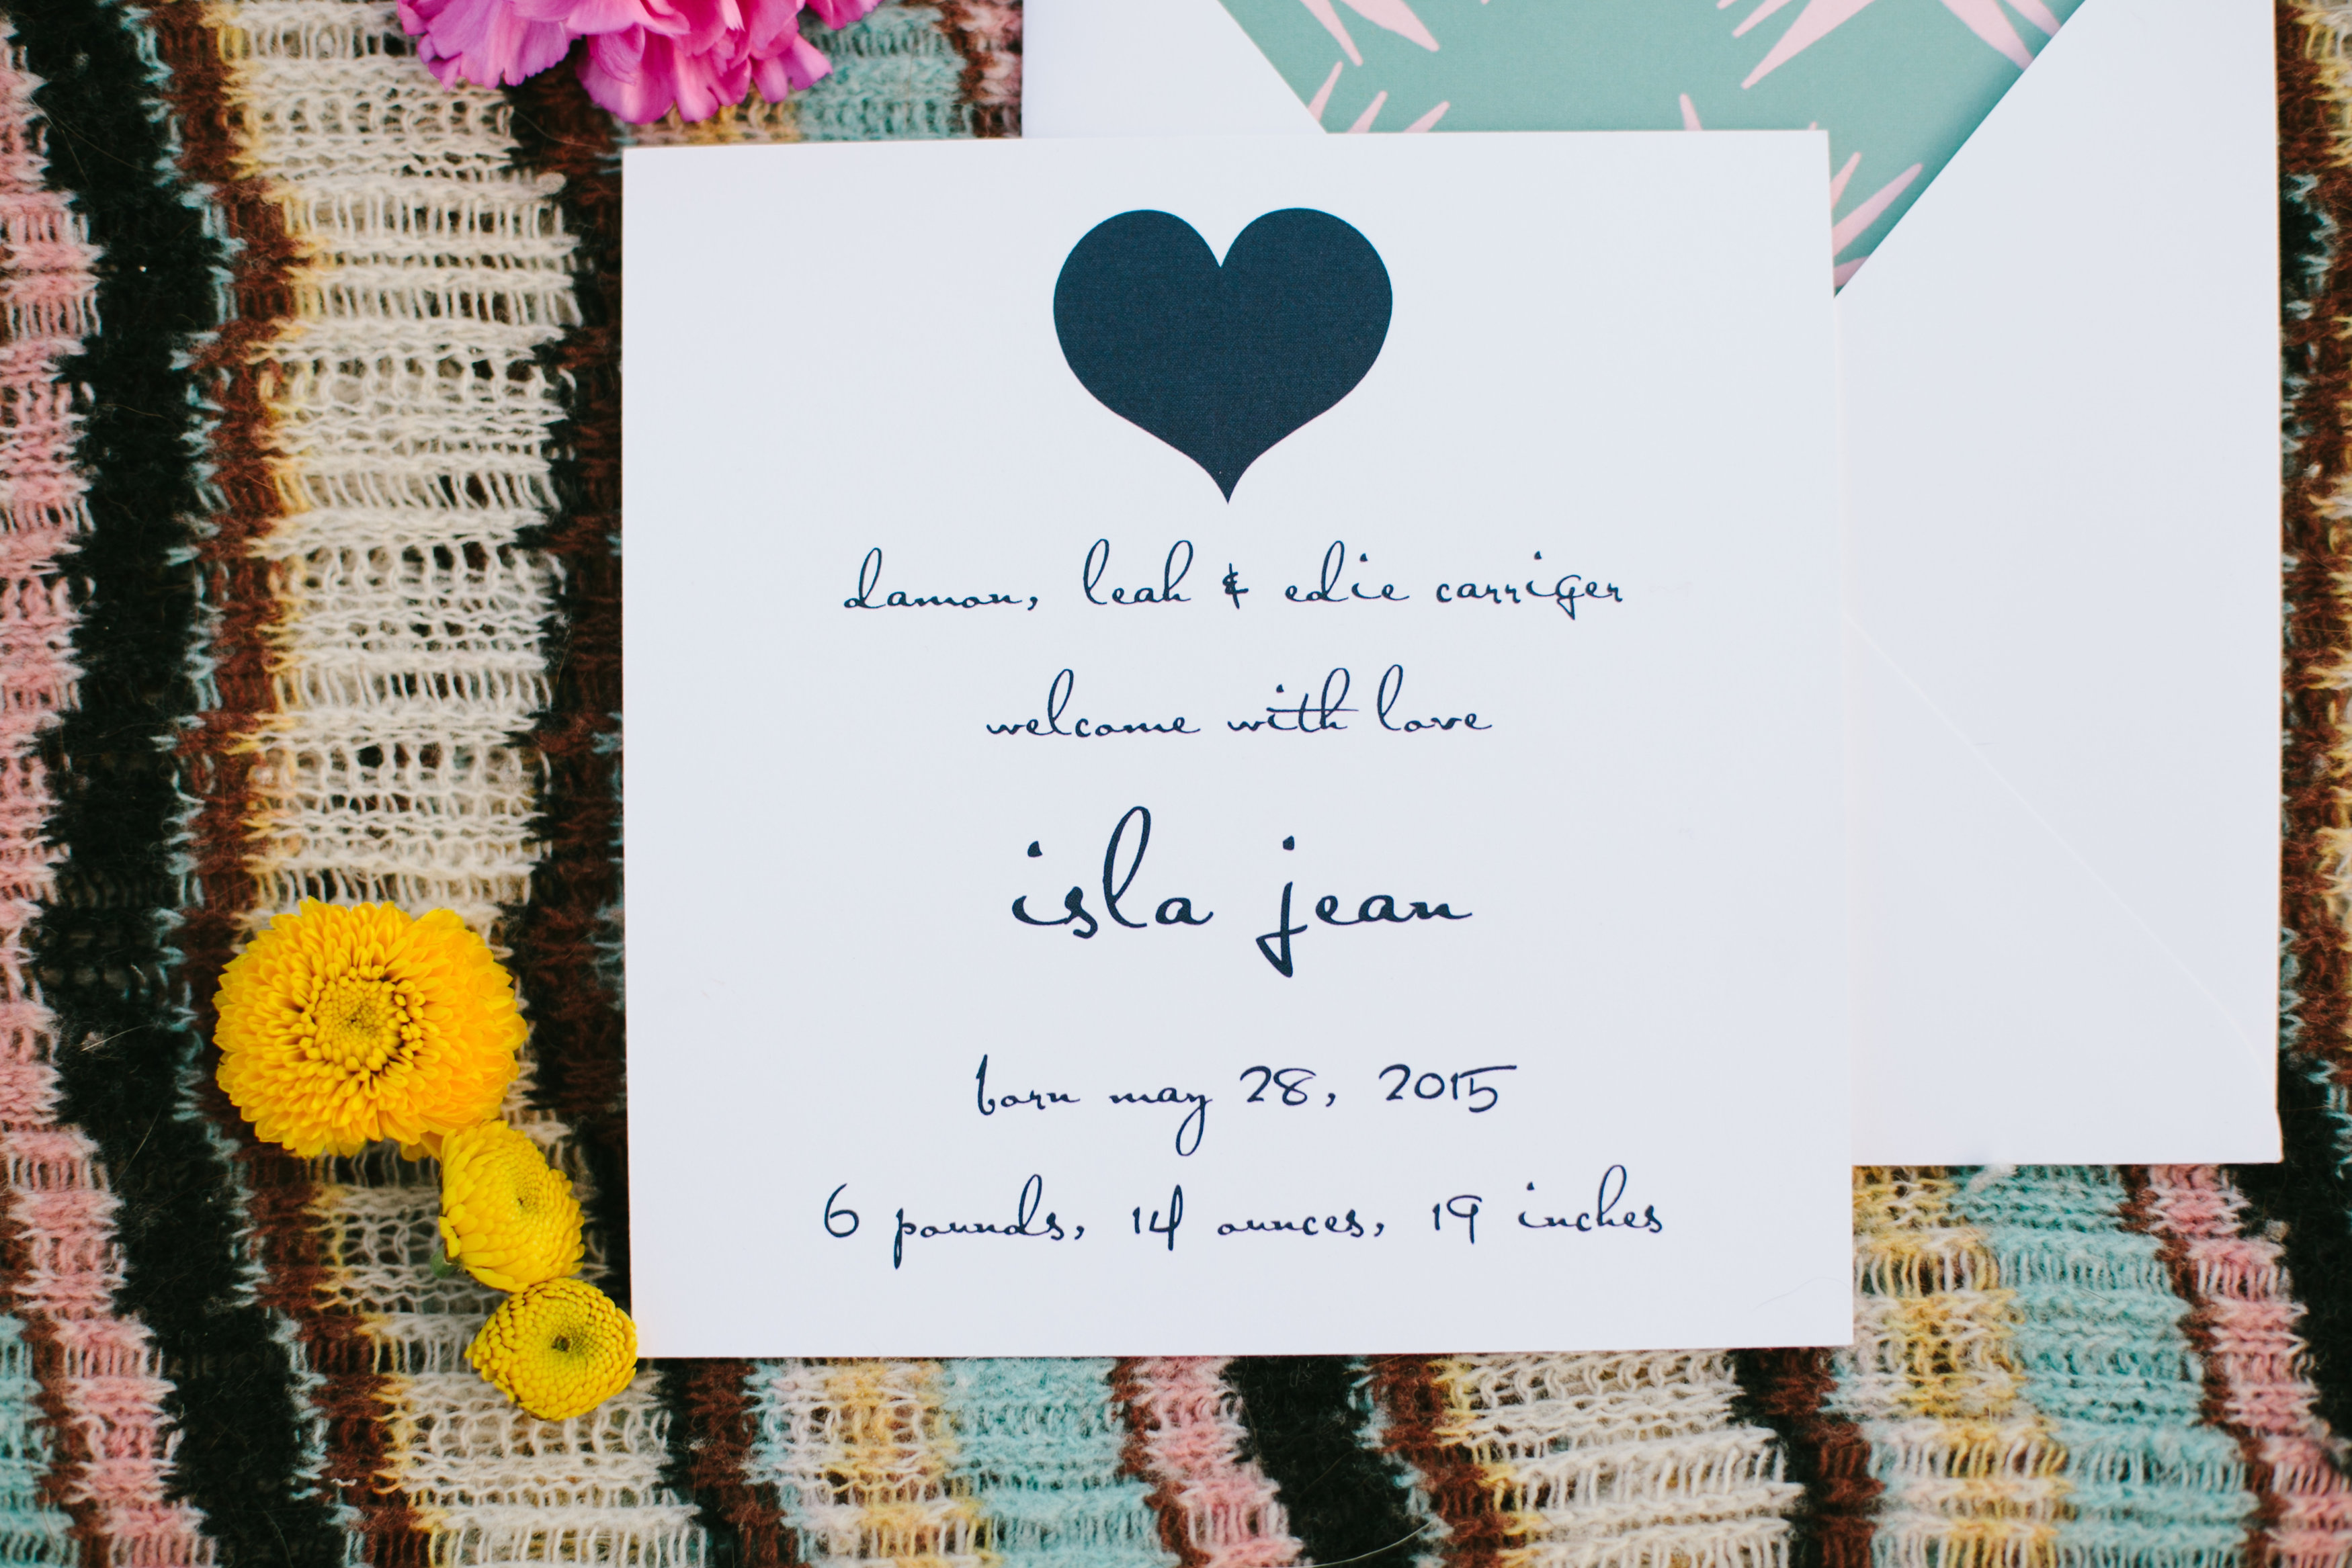 damon, leah & edie carriger
welcome with love
isla jean
born may 28, 2015
6 pounds, 14 ounces, 19 inches